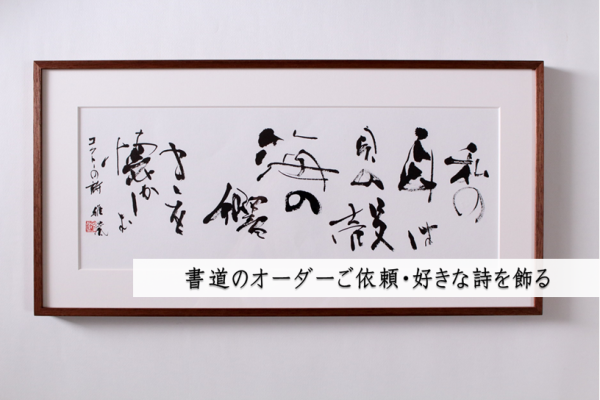 私の
耳は
貝の殻
海の
響
きを
懐かしむ
コクトーの詩
書道のオーダーご依頼・好きな詩を飾る